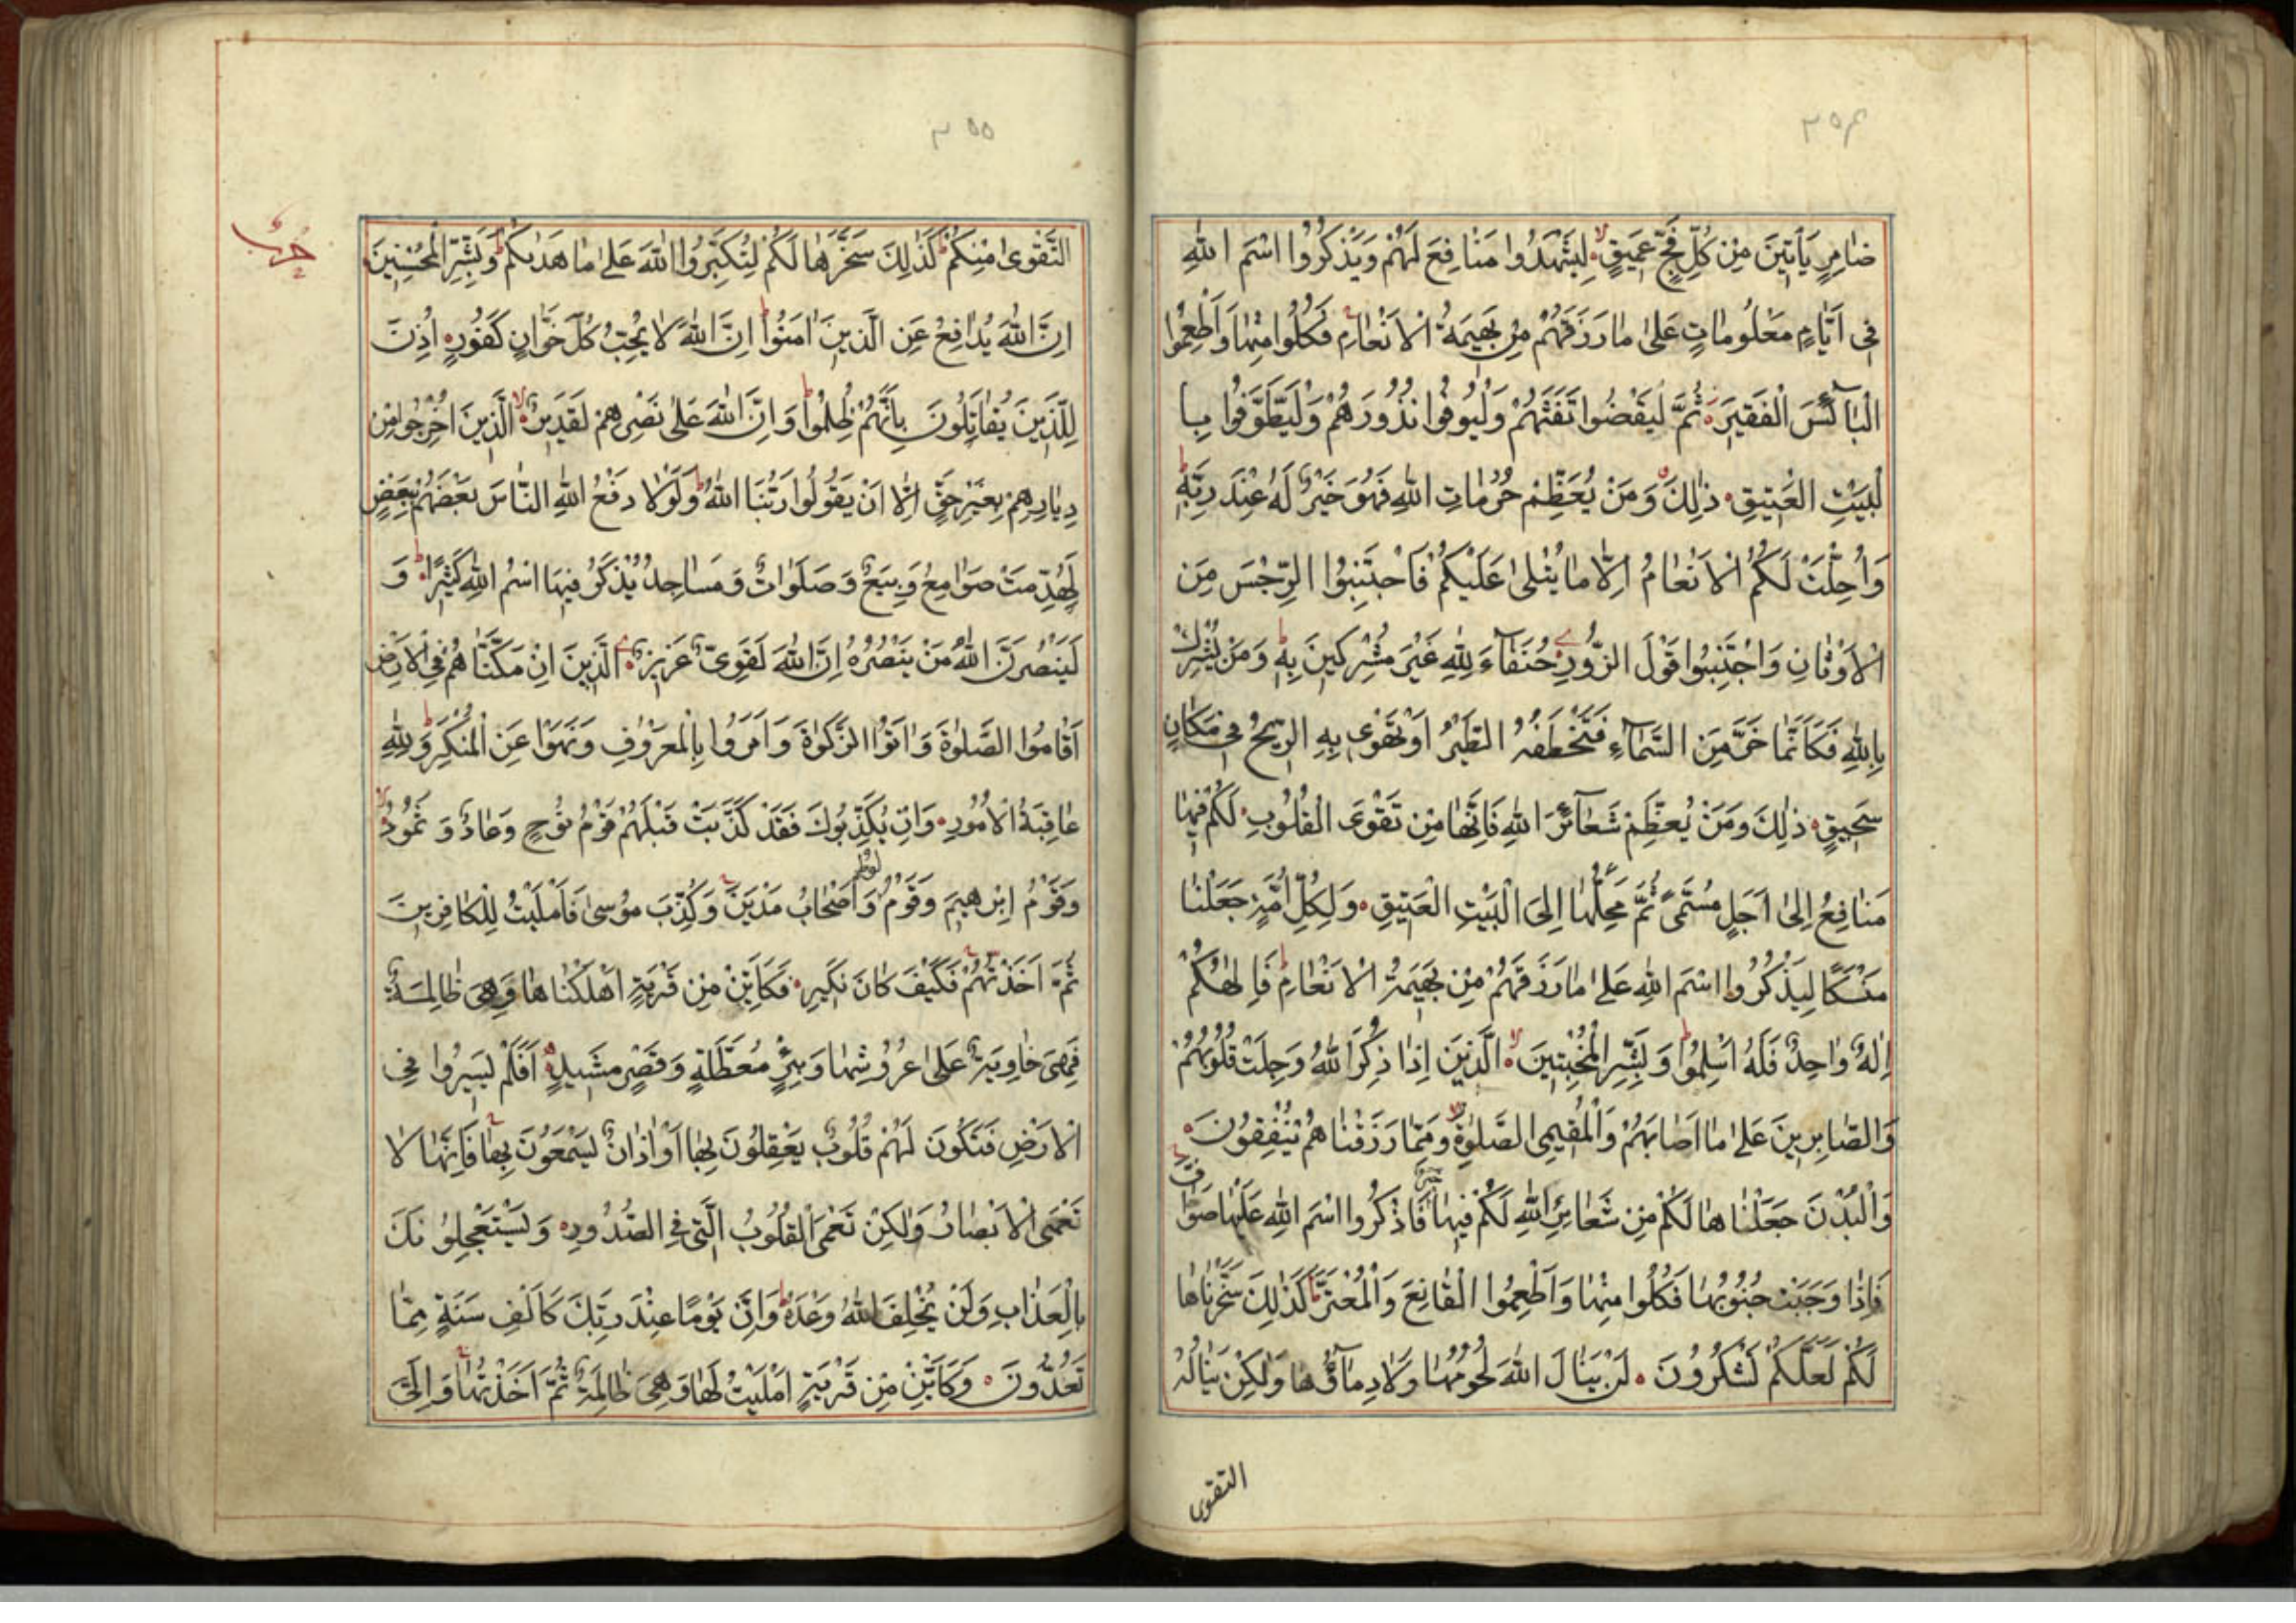 ٣٥٤
ضَامِرٍ يَأْتِينَ مِنْ كُلِّ فَجٍّ عَمِيقٍ لِيَشْهَدُوا مَنَافِعَ لَهُمْ وَيَذْكُرُوا اسْمَ اللهِ
فِي اَيَّامٍ مَعْلُومَاتٍ عَلَىٰ مَا رَزَقَهُمْ مِنْ بَهِيمَةِ الْاَنْعَامِ فَكُلُوا مِنْهَا وَاَطْعِمُوا
الْبَآئِسَ الْفَقِيرَ ثُمَّ لْيَقْضُوا تَفَثَهُمْ وَلْيُوفُوا نُذُورَهُمْ وَلْيَطَّوَّفُوا بِا
لْبَيْتِ الْعَتِيقِ ذٰلِكَ وَمَنْ يُعَظِّمْ حُرُمَاتِ اللهِ فَهُوَ خَيْرٌ لَهُ عِنْدَ رَبِّهِ
وَاُحِلَّتْ لَكُمُ الْاَنْعَامُ اِلَّا مَا يُتْلَىٰ عَلَيْكُمْ فَاجْتَنِبُوا الرِّجْسَ مِنَ
الْاَوْثَانِ وَاجْتَنِبُوا قَوْلَ الزُّورِ حُنَفَآءَ لِلّٰهِ غَيْرَ مُشْرِكِينَ بِهِ وَمَنْ يُشْرِكْ
بِاللهِ فَكَاَنَّمَا خَرَّ مِنَ السَّمَآءِ فَتَخْطَفُهُ الطَّيْرُ اَوْ تَهْوِى بِهِ الرِّيحُ فِي مَكَانٍ
سَحِيقٍ ذٰلِكَ وَمَنْ يُعَظِّمْ شَعَآئِرَ اللهِ فَاِنَّهَا مِنْ تَقْوَى الْقُلُوبِ لَكُمْ فِيهَا
مَنَافِعُ اِلَىٰ اَجَلٍ مُسَمًّى ثُمَّ مَحِلُّهَا اِلَى الْبَيْتِ الْعَتِيقِ وَلِكُلِّ اُمَّةٍ جَعَلْنَا
مَنْسَكًا لِيَذْكُرُوا اسْمَ اللهِ عَلَىٰ مَا رَزَقَهُمْ مِنْ بَهِيمَةِ الْاَنْعَامِ فَاِلٰهُكُمْ
اِلٰهٌ وَاحِدٌ فَلَهُ اَسْلِمُوا وَبَشِّرِ الْمُخْبِتِينَ الَّذِينَ اِذَا ذُكِرَ اللهُ وَجِلَتْ قُلُوبُهُمْ
وَالصَّابِرِينَ عَلَىٰ مَا اَصَابَهُمْ وَالْمُقِيمِى الصَّلٰوةِ وَمِمَّا رَزَقْنَاهُمْ يُنْفِقُونَ
وَالْبُدْنَ جَعَلْنَاهَا لَكُمْ مِنْ شَعَائِرِ اللهِ لَكُمْ فِيهَا خَيْرٌ فَاذْكُرُوا اسْمَ اللهِ عَلَيْهَا صَوَافَّ
فَاِذَا وَجَبَتْ جُنُوبُهَا فَكُلُوا مِنْهَا وَاَطْعِمُوا الْقَانِعَ وَالْمُعْتَرَّ كَذٰلِكَ سَخَّرْنَاهَا
لَكُمْ لَعَلَّكُمْ تَشْكُرُونَ لَنْ يَنَالَ اللهَ لُحُومُهَا وَلَا دِمَآؤُهَا وَلٰكِنْ يَنَالُهُ
التقوى
٣٥٥
حزب
التَّقْوَىٰ مِنْكُمْ كَذٰلِكَ سَخَّرَهَا لَكُمْ لِتُكَبِّرُوا اللهَ عَلَىٰ مَا هَدٰىكُمْ وَبَشِّرِ الْمُحْسِنِينَ
اِنَّ اللهَ يُدَافِعُ عَنِ الَّذِينَ اٰمَنُوا اِنَّ اللهَ لَا يُحِبُّ كُلَّ خَوَّانٍ كَفُورٍ اُذِنَ
لِلَّذِينَ يُقَاتَلُونَ بِاَنَّهُمْ ظُلِمُوا وَاِنَّ اللهَ عَلَىٰ نَصْرِهِمْ لَقَدِيرٌ الَّذِينَ اُخْرِجُوا مِنْ
دِيَارِهِمْ بِغَيْرِ حَقٍّ اِلَّا اَنْ يَقُولُوا رَبُّنَا اللهُ وَلَوْلَا دَفْعُ اللهِ النَّاسَ بَعْضَهُمْ بِبَعْضٍ
لَهُدِّمَتْ صَوَامِعُ وَبِيَعٌ وَصَلَوَاتٌ وَمَسَاجِدُ يُذْكَرُ فِيهَا اسْمُ اللهِ كَثِيرًا وَ
لَيَنْصُرَنَّ اللهُ مَنْ يَنْصُرُهُ اِنَّ اللهَ لَقَوِيٌّ عَزِيزٌ الَّذِينَ اِنْ مَكَّنَّاهُمْ فِي الْاَرْضِ
اَقَامُوا الصَّلٰوةَ وَاٰتَوُا الزَّكٰوةَ وَاَمَرُوا بِالْمَعْرُوفِ وَنَهَوْا عَنِ الْمُنْكَرِ وَلِلّٰهِ
عَاقِبَةُ الْاُمُورِ وَاِنْ يُكَذِّبُوكَ فَقَدْ كَذَّبَتْ قَبْلَهُمْ قَوْمُ نُوحٍ وَعَادٌ وَثَمُودُ
وَقَوْمُ اِبْرٰهِيمَ وَقَوْمُ لُوطٍ وَاَصْحَابُ مَدْيَنَ وَكُذِّبَ مُوسَىٰ فَاَمْلَيْتُ لِلْكَافِرِينَ
ثُمَّ اَخَذْتُهُمْ فَكَيْفَ كَانَ نَكِيرِ فَكَاَيِّنْ مِنْ قَرْيَةٍ اَهْلَكْنَاهَا وَهِىَ ظَالِمَةٌ
فَهِىَ خَاوِيَةٌ عَلَىٰ عُرُوشِهَا وَبِئْرٍ مُعَطَّلَةٍ وَقَصْرٍ مَشِيدٍ اَفَلَمْ يَسِيرُوا فِي
الْاَرْضِ فَتَكُونَ لَهُمْ قُلُوبٌ يَعْقِلُونَ بِهَا اَوْ اٰذَانٌ يَسْمَعُونَ بِهَا فَاِنَّهَا لَا
تَعْمَى الْاَبْصَارُ وَلٰكِنْ تَعْمَى الْقُلُوبُ الَّتِي فِي الصُّدُورِ وَيَسْتَعْجِلُونَكَ
بِالْعَذَابِ وَلَنْ يُخْلِفَ اللهُ وَعْدَهُ وَاِنَّ يَوْمًا عِنْدَ رَبِّكَ كَاَلْفِ سَنَةٍ مِمَّا
تَعُدُّونَ وَكَاَيِّنْ مِنْ قَرْيَةٍ اَمْلَيْتُ لَهَا وَهِىَ ظَالِمَةٌ ثُمَّ اَخَذْتُهَا وَاِلَيَّ